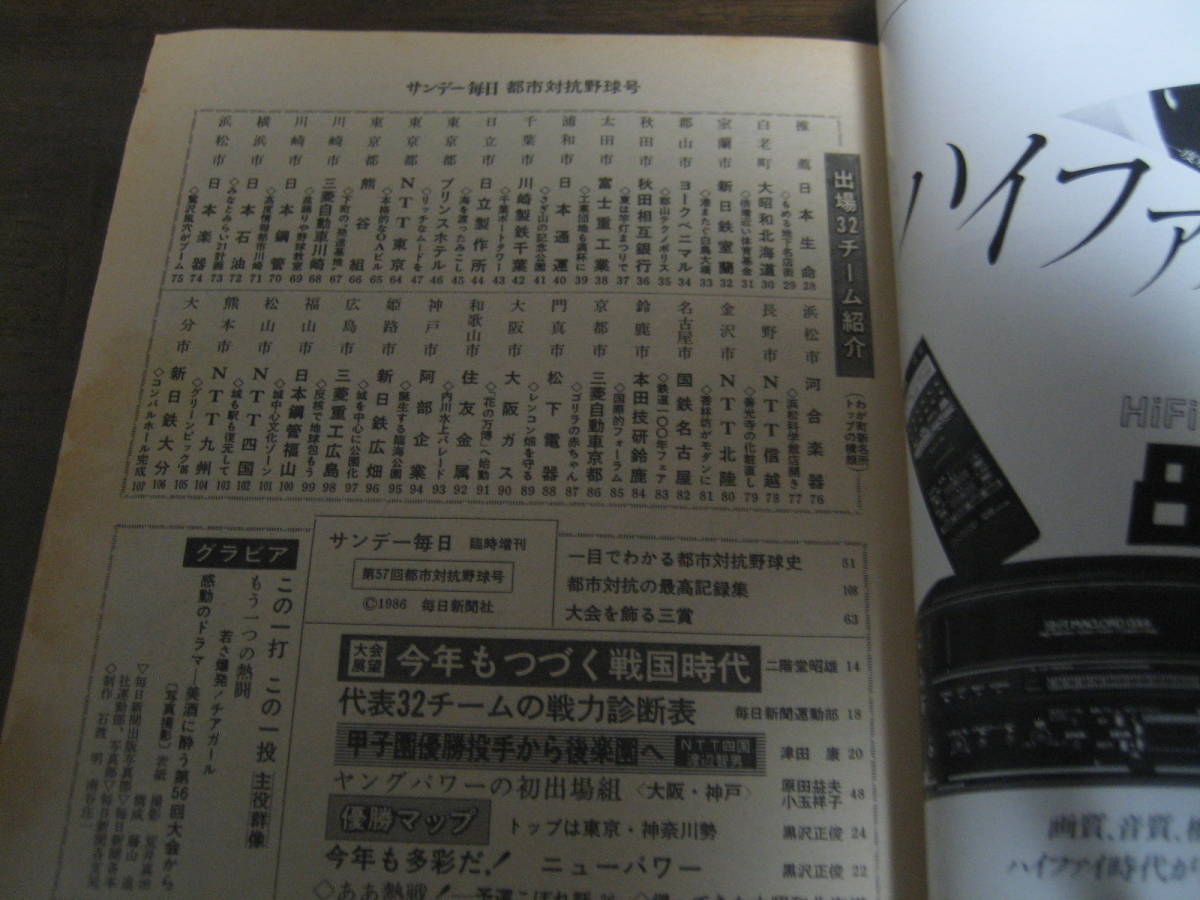 サンデー毎日 都市対抗野球号
出場32チーム紹介
推薦 日本生命 28
◇もめる地下名店街 29
白老町 大昭和北海道 30
室蘭市 新日鉄室蘭 32
◇港またぐ白鳥大橋 33
郡山市 ヨークベニマル 34
◇郡山テクノポリス 35
秋田市 秋田相互銀行 36
◇夏は竿灯まつりで 37
太田市 富士重工業 38
◇工業団地も満杯に 39
浦和市 日本通運 40
千葉市 川崎製鉄千葉 42
◇千葉ポートタワー 43
日立市 日立製作所 44
東京都 プリンスホテル 46
◇リッチなムードを 47
東京都 NTT東京 64
◇本格的なOAビル 65
東京都 熊谷組 66
川崎市 三菱自動車川崎 68
川崎市 日本鋼管 70
◇高度情報都市川崎 71
横浜市 日本石油 72
◇みなとみらい21計画 73
浜松市 日本楽器 74
75
(わが町新名所 トップの横顔)
浜松市 河合楽器 76
77
長野市 NTT信越 78
◇善光寺の化粧直し 79
金沢市 NTT北陸 80
◇香林坊がモダンに 81
名古屋市 国鉄名古屋 82
◇鉄道一〇〇年フェア 83
鈴鹿市 本田技研鈴鹿 84
◇国際的フォーラム 85
京都市 三菱自動車京都 86
◇ゴリラの赤ちゃん 87
門真市 松下電器 88
◇レンコン畑を守る 89
大阪市 大阪ガス 90
◇“花の万博”へ始動 91
和歌山市 住友金属 92
◇内川水上パレード 93
神戸市 阿部企業 94
◇誕生する臨海公園 95
姫路市 新日鉄広畑 96
◇城を中心に公園化 97
広島市 三菱重工広島 98
◇反核で地球包もう 99
福山市 日本鋼管福山 100
◇城中心文化ゾーン 101
松山市 NTT四国 102
◇城も駅も復元して 103
熊本市 NTT九州 104
105
大分市 新日鉄大分 106
◇コンパルホール完成 107
一目でわかる都市対抗野球史 51
都市対抗の最高記録集 108
大会を飾る三賞 63
サンデー毎日 臨時増刊
第57回都市対抗野球号
©1986 毎日新聞社
大会展望 今年もつづく戦国時代 二階堂昭雄 14
代表32チームの戦力診断表 毎日新聞運動部 18
甲子園優勝投手から後楽園へ NTT四国 渡辺智男 津田 康 20
ヤングパワーの初出場組〈大阪・神戸〉 原田益夫 小玉祥子 48
優勝マップ トップは東京・神奈川勢 黒沢正俊 24
今年も多彩だ! ニューパワー 黒沢正俊 22
◇ああ熱戦!―予選こぼれ話
グラビア
この一打 この一投 主役群像
もう一つの熱闘
若さ爆発!チアガール
感動のドラマ―美酒に酔う第56回大会から
ハイファ
HiFi
8
画質、音質、
ハイファイ時代が